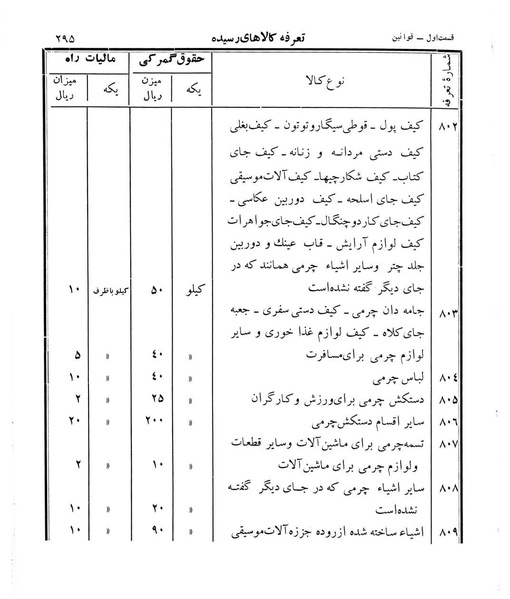 قسمت اول ـ قوانین
تعرفه کالاهای رسیده
۲۹۵
شمارهٔ تعرفه
نوع کالا
حقوق گمرکی
مالیات راه
یکه
میزن ریال
یکه
میزان ریال
۸۰۲ کیف پول ـ قوطی سیگار و توتون ـ کیف بغلی
کیف دستی مردانه و زنانه ـ کیف جای
کتاب ـ کیف شکارچیها ـ کیف آلات موسیقی
کیف جای اسلحه ـ کیف دوربین عکاسی ـ
کیف جای کارد و چنگال ـ کیف جای جواهرات
کیف لوازم آرایش ـ قاب عینك و دوربین
جلد چتر وسایر اشیاء چرمی همانند که در
جای دیگر گفته نشده است کیلو ۵۰ کیلو باظرف ۱۰
۸۰۳ جامه دان چرمی ـ کیف دستی سفری ـ جعبه
جای کلاه ـ کیف لوازم غذا خوری و سایر
لوازم چرمی برای مسافرت » ۴۰ » ۵
۸۰۴ لباس چرمی » ۴۰ » ۱۰
۸۰۵ دستکش چرمی برای ورزش و کارگران » ۲۵ » ۲
۸۰۶ سایر اقسام دستکش چرمی » ۲۰۰ » ۲۰
۸۰۷ تسمه چرمی برای ماشین آلات وسایر قطعات
ولوازم چرمی برای ماشین آلات » ۱۰ » ۲
۸۰۸ سایر اشیاء چرمی که در جای دیگر گفته
نشده است » ۲۰ » ۱۰
۸۰۹ اشیاء ساخته شده از روده جززه آلات موسیقی » ۹۰ » ۱۰